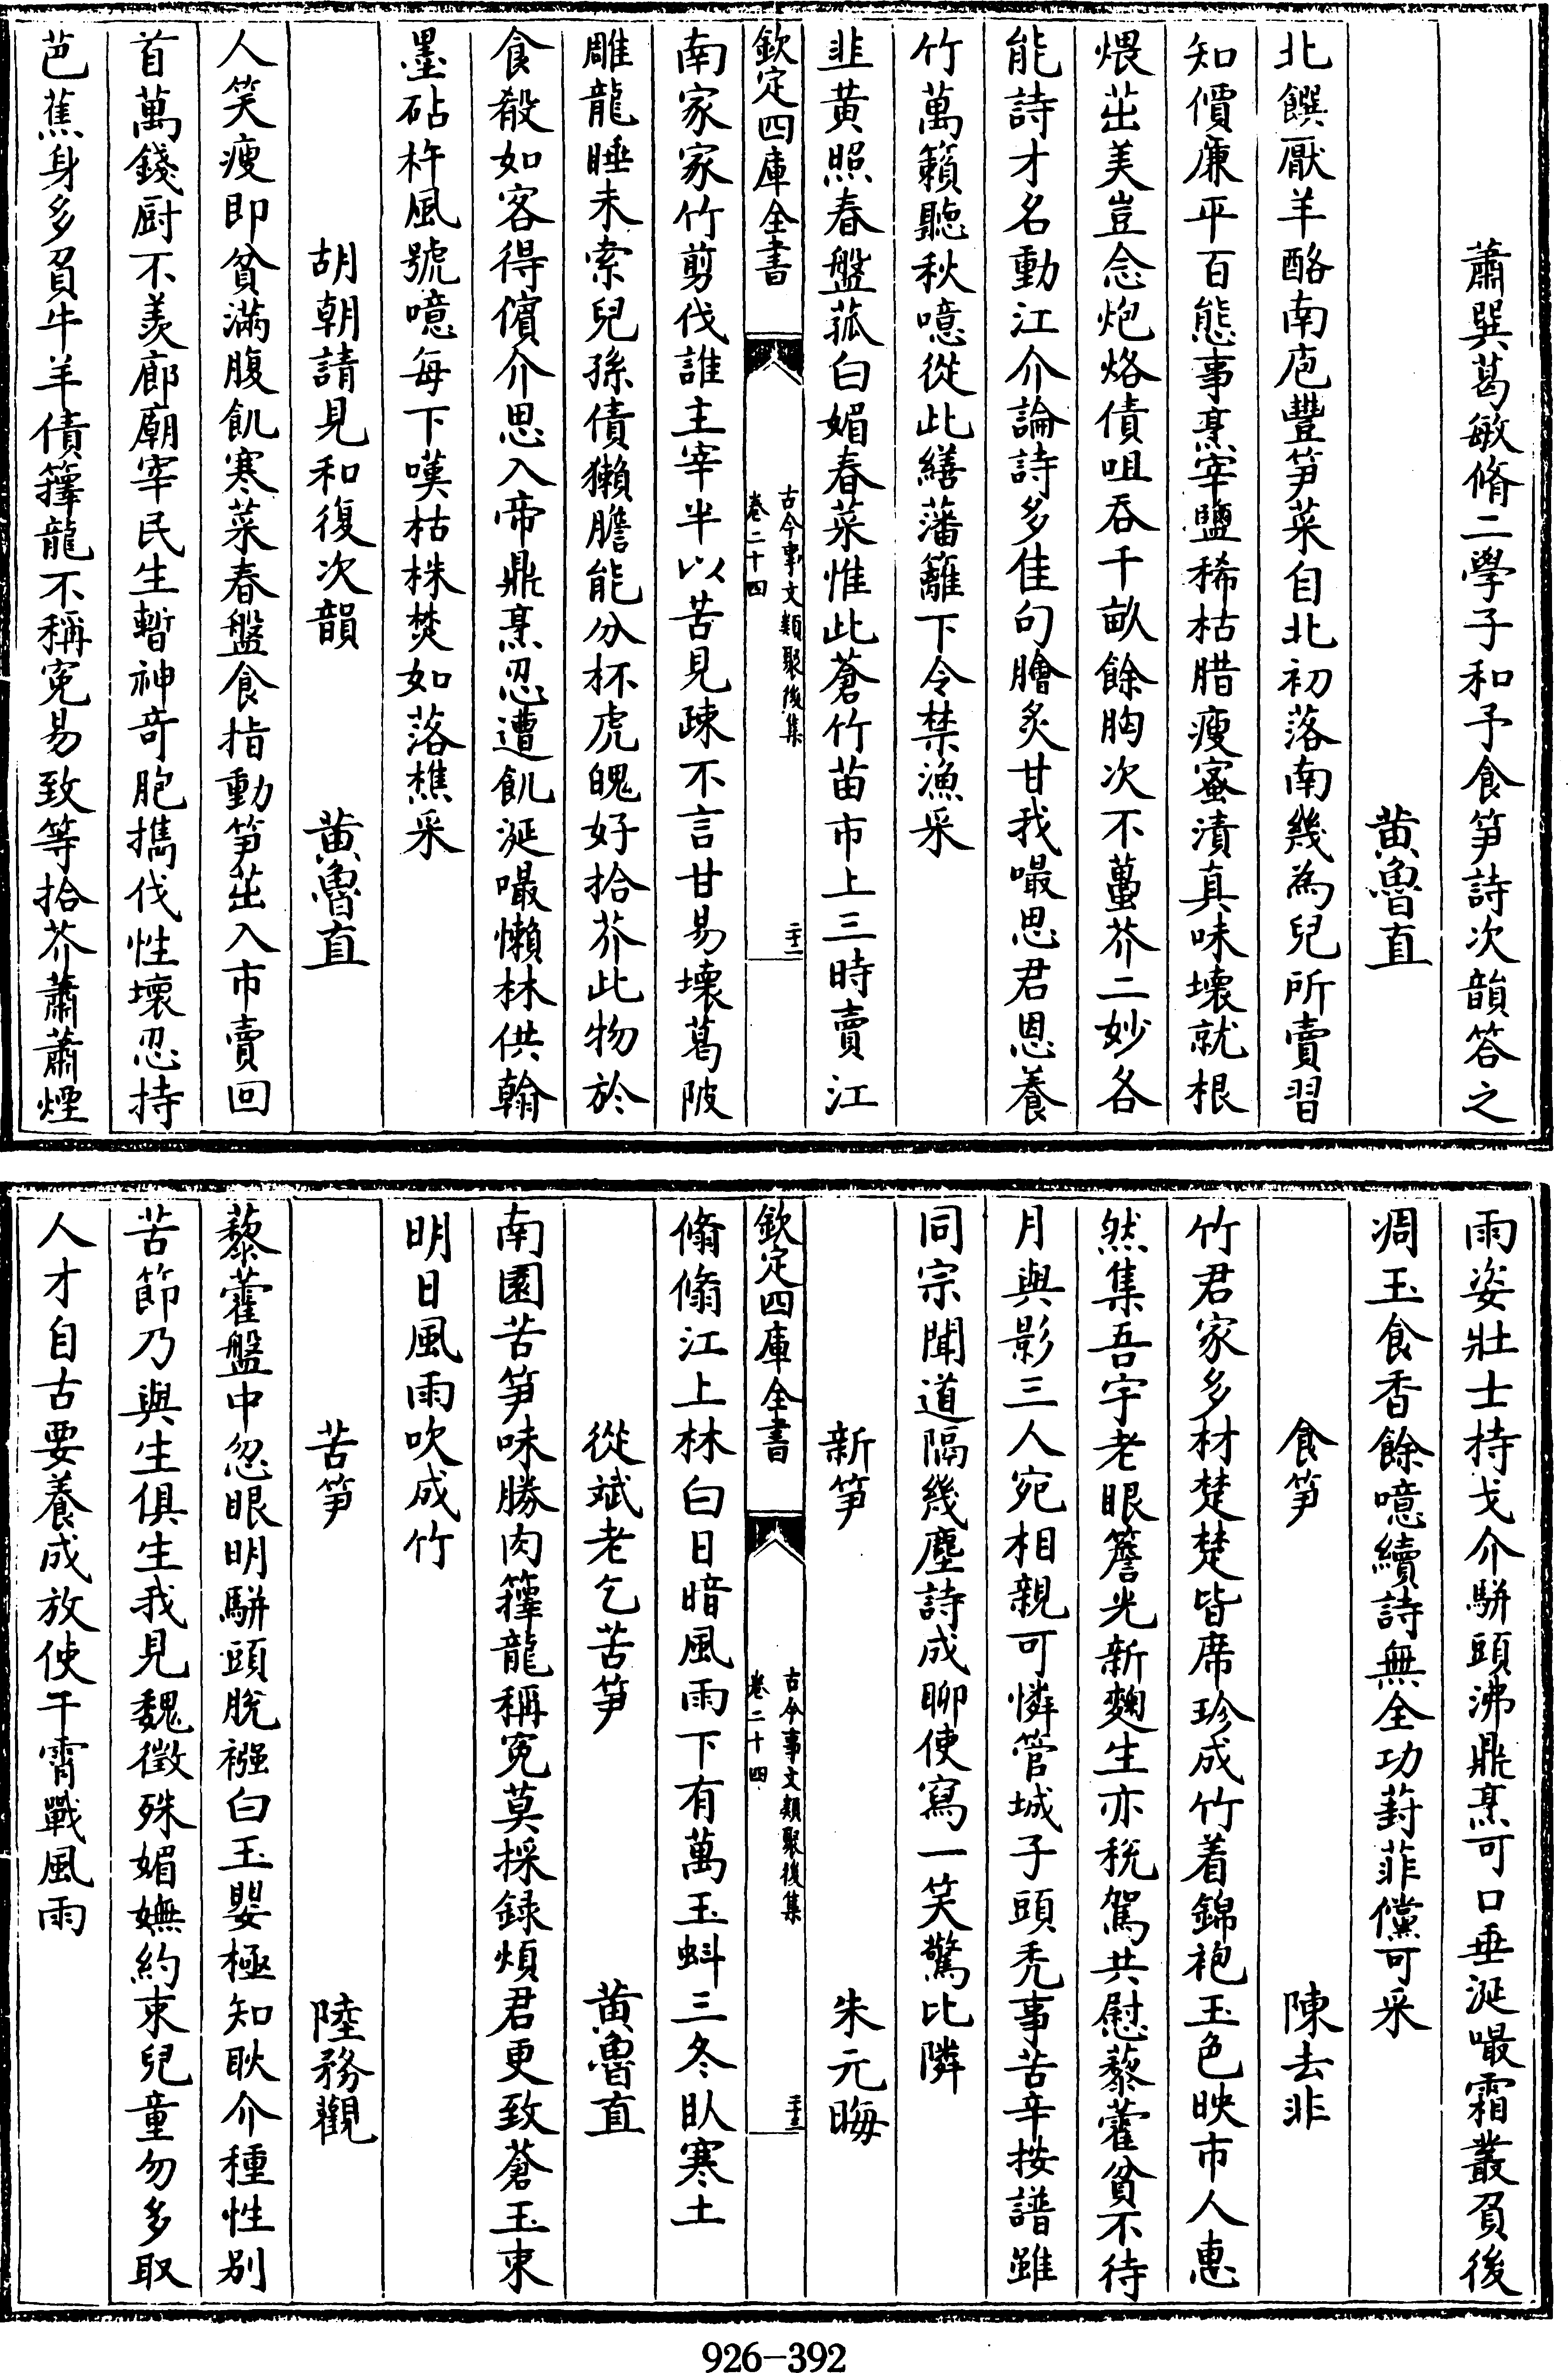 蕭巽葛敏脩二學子和予食笋詩次韻答之
黄魯直
北饌厭羊酪南庖豐笋菜自北初落南幾為兒所賣習
知價亷平百態事烹宰鹽稀枯腊瘦蜜漬真味壞就根
煨茁美豈念炮烙債咀吞千畝餘胸次不蠆芥二妙各
能詩才名動江介論詩多佳句膾炙甘我嘬思君恩養
竹萬籟聽秋噫從此繕藩籬下令禁漁采
韭黄照春盤菰白媚春菜惟此蒼竹苗市上三時賣江
欽定四庫全書
古今事文類聚後集
卷二十四
二十二
南家家竹剪伐誰主宰半以苦見疎不言甘易壞葛陂
雕龍睡未索兒孫債獺膽能分杯虎魄好拾芥此物於
食殽如客得儐介思入帝鼎烹忍遭飢涎嘬懶林供翰
墨砧杵風號噫每下嘆枯株焚如落樵采
胡朝請見和復次韻
黄魯直
人笑瘦即貧滿腹飢寒菜春盤食指動笋茁入市賣回
首萬錢厨不羨廊廟宰民生暫神奇胞擕伐性壞忍持
芭蕉身多負牛羊債籜龍不稱寃易致等拾芥蕭蕭煙
雨姿壯士持戈介駢頭沸鼎烹可口垂涎嘬霜叢負後
凋玉食香餘噫續詩無全功葑菲儻可采
食笋
陳去非
竹君家多材楚楚皆席珍成竹着錦袍玉色映市人惠
然集吾宇老眼簷光新麴生亦税駕共慰藜藿貧不待
月與影三人宛相親可憐管城子頭禿事苦辛按譜雖
同宗聞道隔幾塵詩成聊使寫一笑驚比隣
新笋
朱元晦
欽定四庫全書
古今事文類聚後集
卷二十四
二十三
翛翛江上林白日暗風雨下有萬玉蚪三冬臥寒土
從斌老乞苦笋
黄魯直
南園苦笋味勝肉籜龍稱寃莫採録煩君更致蒼玉束
明日風雨吹成竹
苦笋
陸務觀
藜藿盤中忽眼明駢頭脫襁白玉嬰極知耿介種性别
苦節乃與生俱生我見魏徵殊媚嫵約束兒童勿多取
人才自古要養成放使干霄戰風雨
926-392